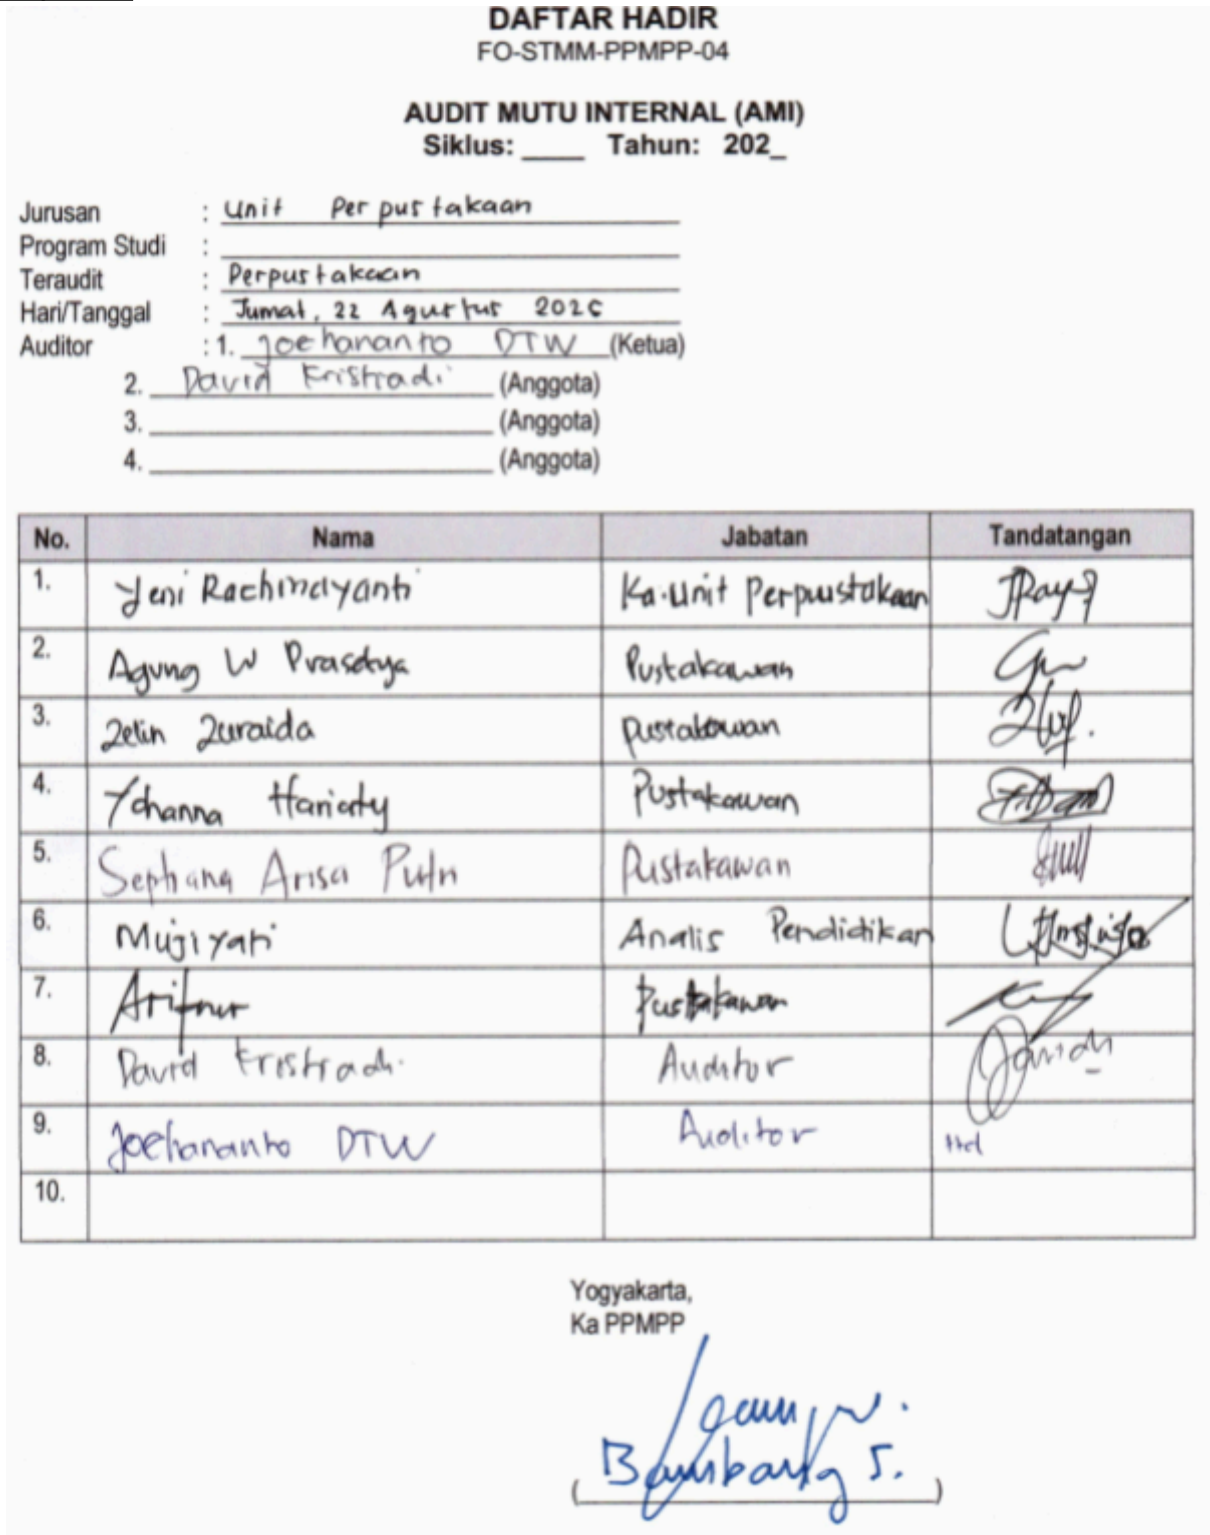 DAFTAR HADIR
FO-STMM-PPMPP-04
AUDIT MUTU INTERNAL (AMI)
Siklus: ____ Tahun: 202_
Jurusan : Unit Perpustakaan
Program Studi :
Teraudit : Perpustakaan
Hari/Tanggal : Jumat, 22 Agustus
Auditor : 1. Joehananto DTW (Ketua)
2. David Kristiadi (Anggota)
3. (Anggota)
4. (Anggota)
No. Nama Jabatan Tandatangan
1. Yeni Rachmayanti Ka.Unit Perpustakaan
2. Agung W Prasetya Pustakawan
3. Zelin Zuraida pustakawan
4. Yohanna Hariaty Pustakawan
5. Arisa Putri Pustakawan
6. Mujiyati Analis Pendidikan
7. Arifnur Pustakawan
8. David Kristiadi Auditor
9. Joehananto DTW Auditor ttd
10.
Yogyakarta,
Ka PPMPP
Bambang S.
( )